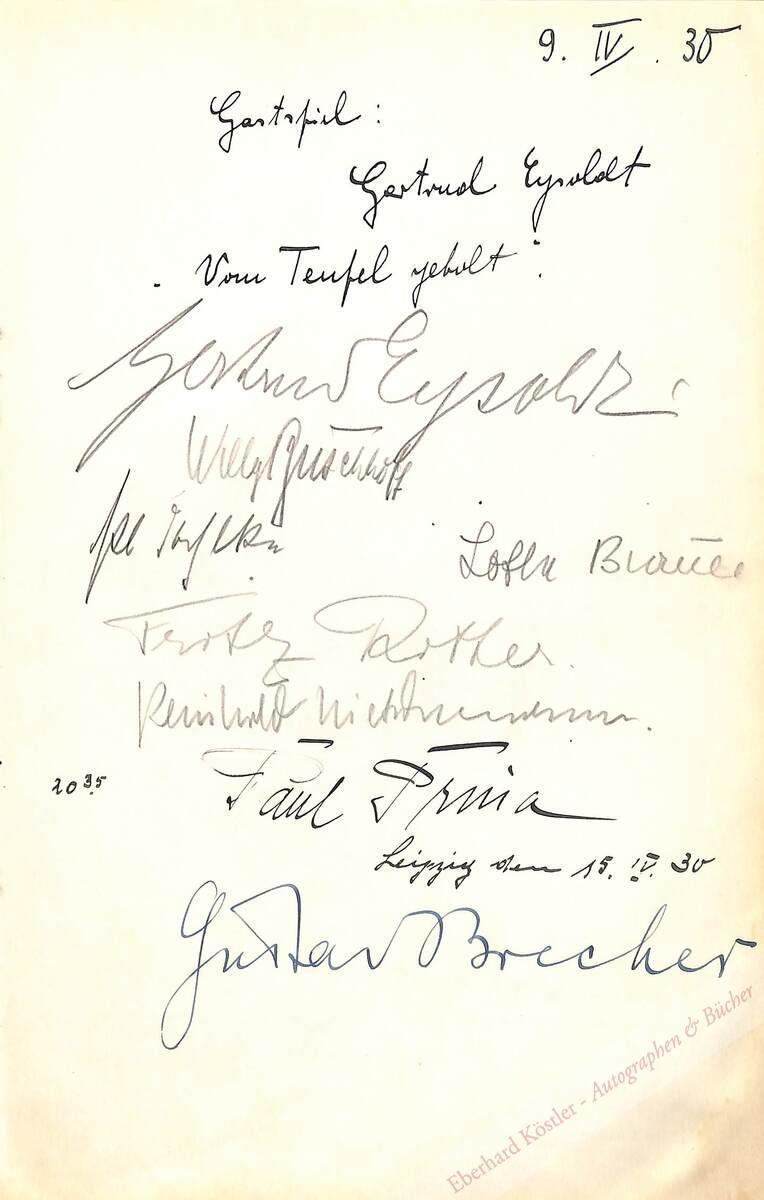 9. IV. 30
Gastspiel:
Gertrud Eysoldt
"Vom Teufel geholt".
Gertrud Eysoldt
Willy Buschhoff
Lotte
Fritz Rother.
Reinhold
20 35
Paul Prina
Leipzig den 15. IV. 30
Gustav Brecher
Eberhard Köstler - Autographen & Bücher